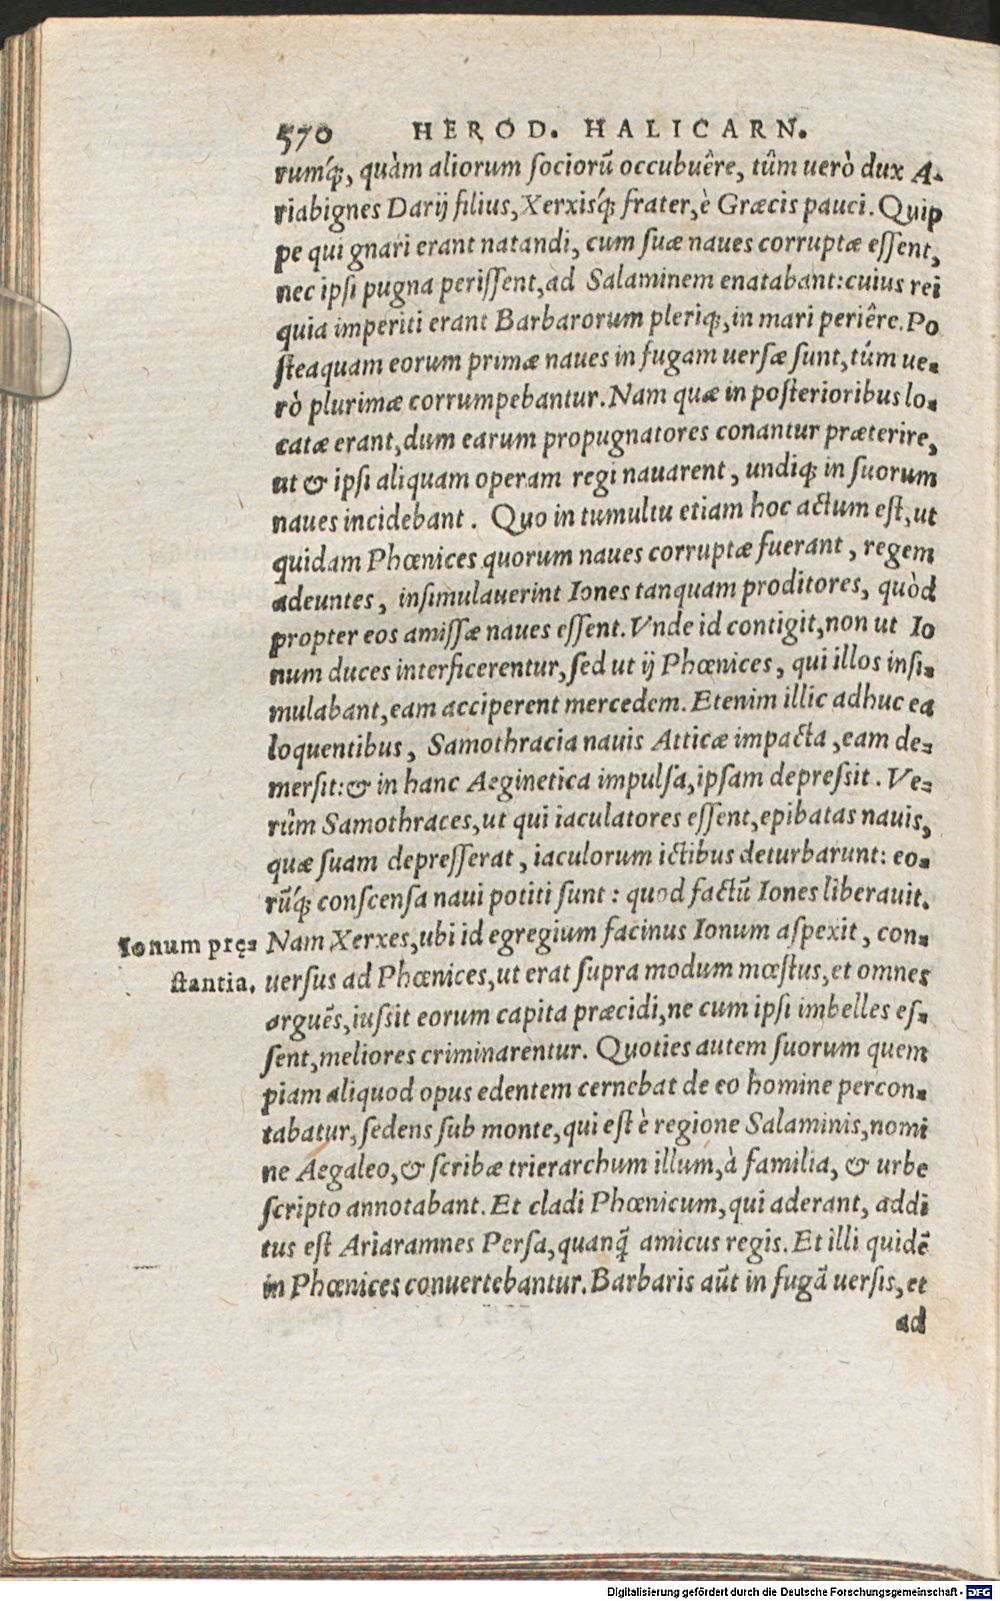 570 HEROD. HALICARN.
rumq́;, quàm aliorum ſociorũ occubuêre, tûm uerò dux A-
riabignes Darij filius, Xerxisq́; frater, è Græcis pauci. Quip
pe qui gnari erant natandi, cum ſuæ naues corruptæ eſſent,
nec ipſi pugna periſſent, ad Salaminem enatabant: cuius rei
quia imperiti erant Barbarorum pleriq;, in mari periêre. Po
ſteaquam eorum primæ naues in fugam uerſæ ſunt, tûm ue-
rò plurimæ corrumpebantur. Nam quæ in poſterioribus lo-
catæ erant, dum earum propugnatores conantur præterire,
ut & ipſi aliquam operam regi nauarent, undiq; in ſuorum
naues incidebant. Quo in tumultu etiam hoc actum eſt, ut
quidam Phœnices quorum naues corruptæ fuerant, regem
adeuntes, inſimulauerint Iones tanquam proditores, quòd
propter eos amiſſæ naues eſſent. Vnde id contigit, non ut Io
num duces interficerentur, ſed ut ij Phœnices, qui illos inſi-
mulabant, eam acciperent mercedem. Etenim illic adhuc ea
loquentibus, Samothracia nauis Atticæ impacta, eam de-
merſit: & in hanc Aeginetica impulſa, ipſam depreſsit. Ve-
rûm Samothraces, ut qui iaculatores eſſent, epibatas nauis,
quæ ſuam depreſſerat, iaculorum ictibus deturbarunt: eo-
rũq́; conſcenſa naui potiti ſunt: quod factũ Iones liberauit.
Ionum prę- Nam Xerxes, ubi id egregium facinus Ionum aſpexit, con-
ſtantia. uerſus ad Phœnices, ut erat ſupra modum mœſtus, et omnes
arguẽs, iuſsit eorum capita præcidi, ne cum ipſi imbelles eſ-
ſent, meliores criminarentur. Quoties autem ſuorum quem
piam aliquod opus edentem cernebat de eo homine percon-
tabatur, ſedens ſub monte, qui eſt è regione Salaminis, nomi
ne Aegaleo, & ſcribæ trierarchum illum, à familia, & urbe
ſcripto annotabant. Et cladi Phœnicum, qui aderant, addi
tus eſt Ariaramnes Perſa, quanq̃ amicus regis. Et illi quidẽ
in Phœnices conuertebantur. Barbaris aũt in fugã uerſis, et
ad
Digitalisierung gefördert durch die Deutsche Forschungsgemeinschaft - DFG